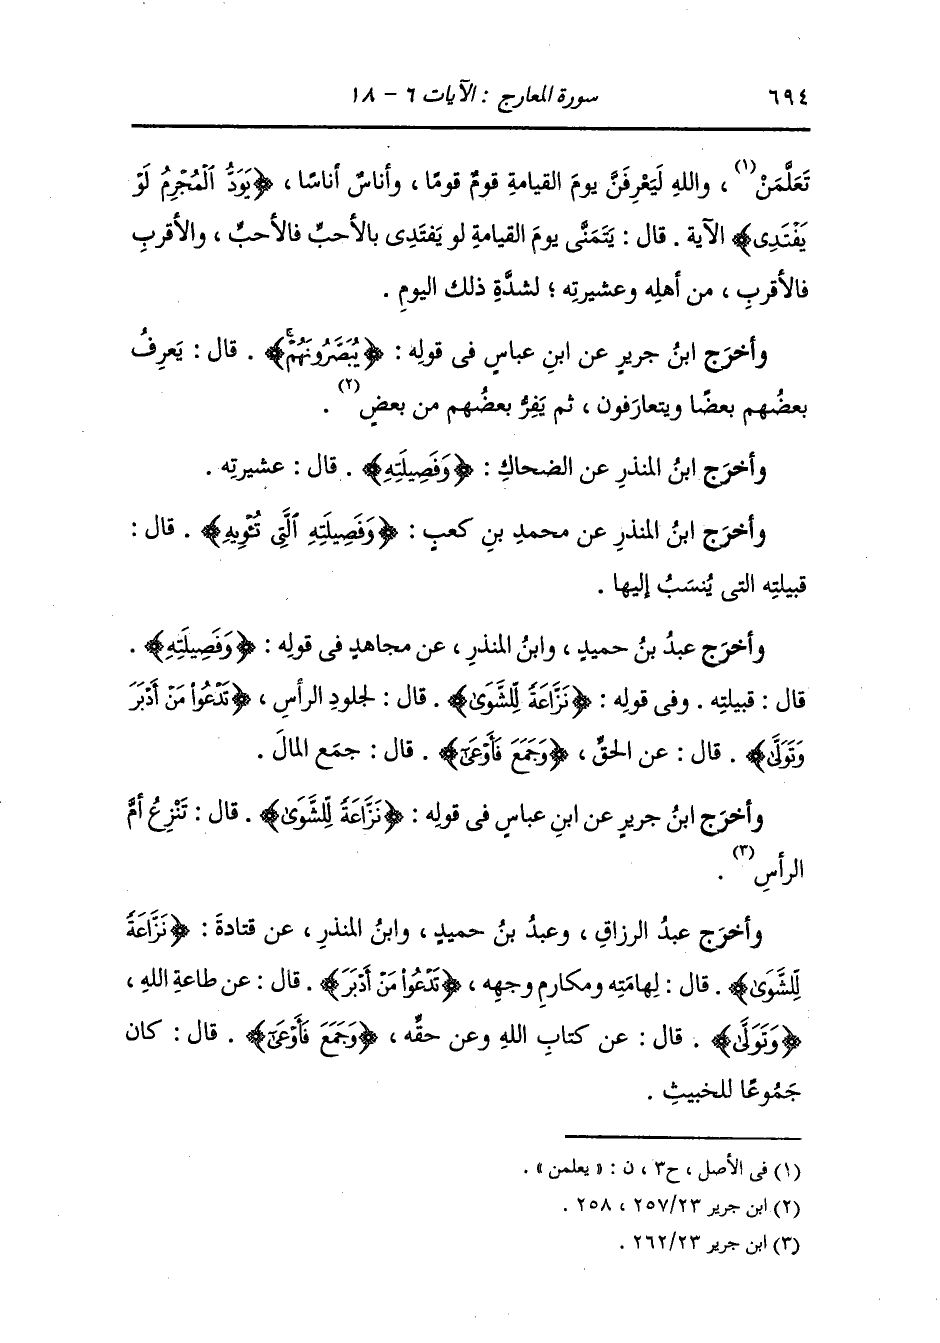 ٦٩٤ سورة المعارج : الآيات ٦ - ١٨
تَعَلَّمَنْ(١) ، واللهِ لَيَعْرِفَنَّ يومَ القيامةِ قومٌ قومًا ، وأناسٌ أناسًا ، ﴿يَوَدُّ ٱلْمُجْرِمُ لَوْ
يَفْتَدِى﴾ الآية . قال : يَتَمَنَّى يومَ القيامةِ لو يَفتَدِى بالأحبِّ فالأحبِّ ، والأقربِ
فالأقربِ ، من أهلِه وعشيرتِه ؛ لشدَّةِ ذلك اليومِ .
وأخرَج ابنُ جريرٍ عن ابنِ عباسٍ فى قولِه : ﴿يُبَصَّرُونَهُمْۚ﴾ . قال : يَعرِفُ
بعضُهم بعضًا ويتعارَفون ، ثم يَفِرُّ بعضُهم من بعضٍ(٢) .
وأخرَج ابنُ المنذرِ عن الضحاكِ : ﴿وَفَصِيلَتِهِ﴾ . قال : عشيرتِه .
وأخرَج ابنُ المنذرِ عن محمدِ بنِ كعبٍ : ﴿وَفَصِيلَتِهِ ٱلَّتِى تُـْٔوِيهِ﴾ . قال :
قبيلتِه التى يُنسَبُ إليها .
وأخرَج عبدُ بنُ حميدٍ ، وابنُ المنذرِ ، عن مجاهدٍ فى قولِه : ﴿وَفَصِيلَتِهِ﴾ .
قال : قبيلتِه . وفى قولِه : ﴿نَزَّاعَةً لِّلشَّوَىٰ﴾ . قال : لجلودِ الرأسِ ، ﴿تَدْعُوا۟ مَنْ أَدْبَرَ
وَتَوَلَّىٰ﴾ . قال : عن الحقِّ ، ﴿وَجَمَعَ فَأَوْعَىٰٓ﴾ . قال : جمَع المالَ .
وأخرَج ابنُ جريرٍ عن ابنِ عباسٍ فى قولِه : ﴿نَزَّاعَةً لِّلشَّوَىٰ﴾ . قال : تَنْزِعُ أمَّ
الرأسِ(٣) .
وأخرَج عبدُ الرزاقِ ، وعبدُ بنُ حميدٍ ، وابنُ المنذرِ ، عن قتادةَ : ﴿نَزَّاعَةً
لِّلشَّوَىٰ﴾ . قال : لِهامَتِه ومكارمِ وجهِه ، ﴿تَدْعُوا۟ مَنْ أَدْبَرَ﴾ . قال : عن طاعةِ اللهِ ،
﴿وَتَوَلَّىٰ﴾ . قال : عن كتابِ اللهِ وعن حقِّه ، ﴿وَجَمَعَ فَأَوْعَىٰٓ﴾ . قال : كان
جَمُوعًا للخبيثِ .
(١) فى الأصل ، ح٣ ، ن : « يعلمن » .
(٢) ابن جرير ٢٥٧/٢٣ ، ٢٥٨ .
(٣) ابن جرير ٢٦٢/٢٣ .